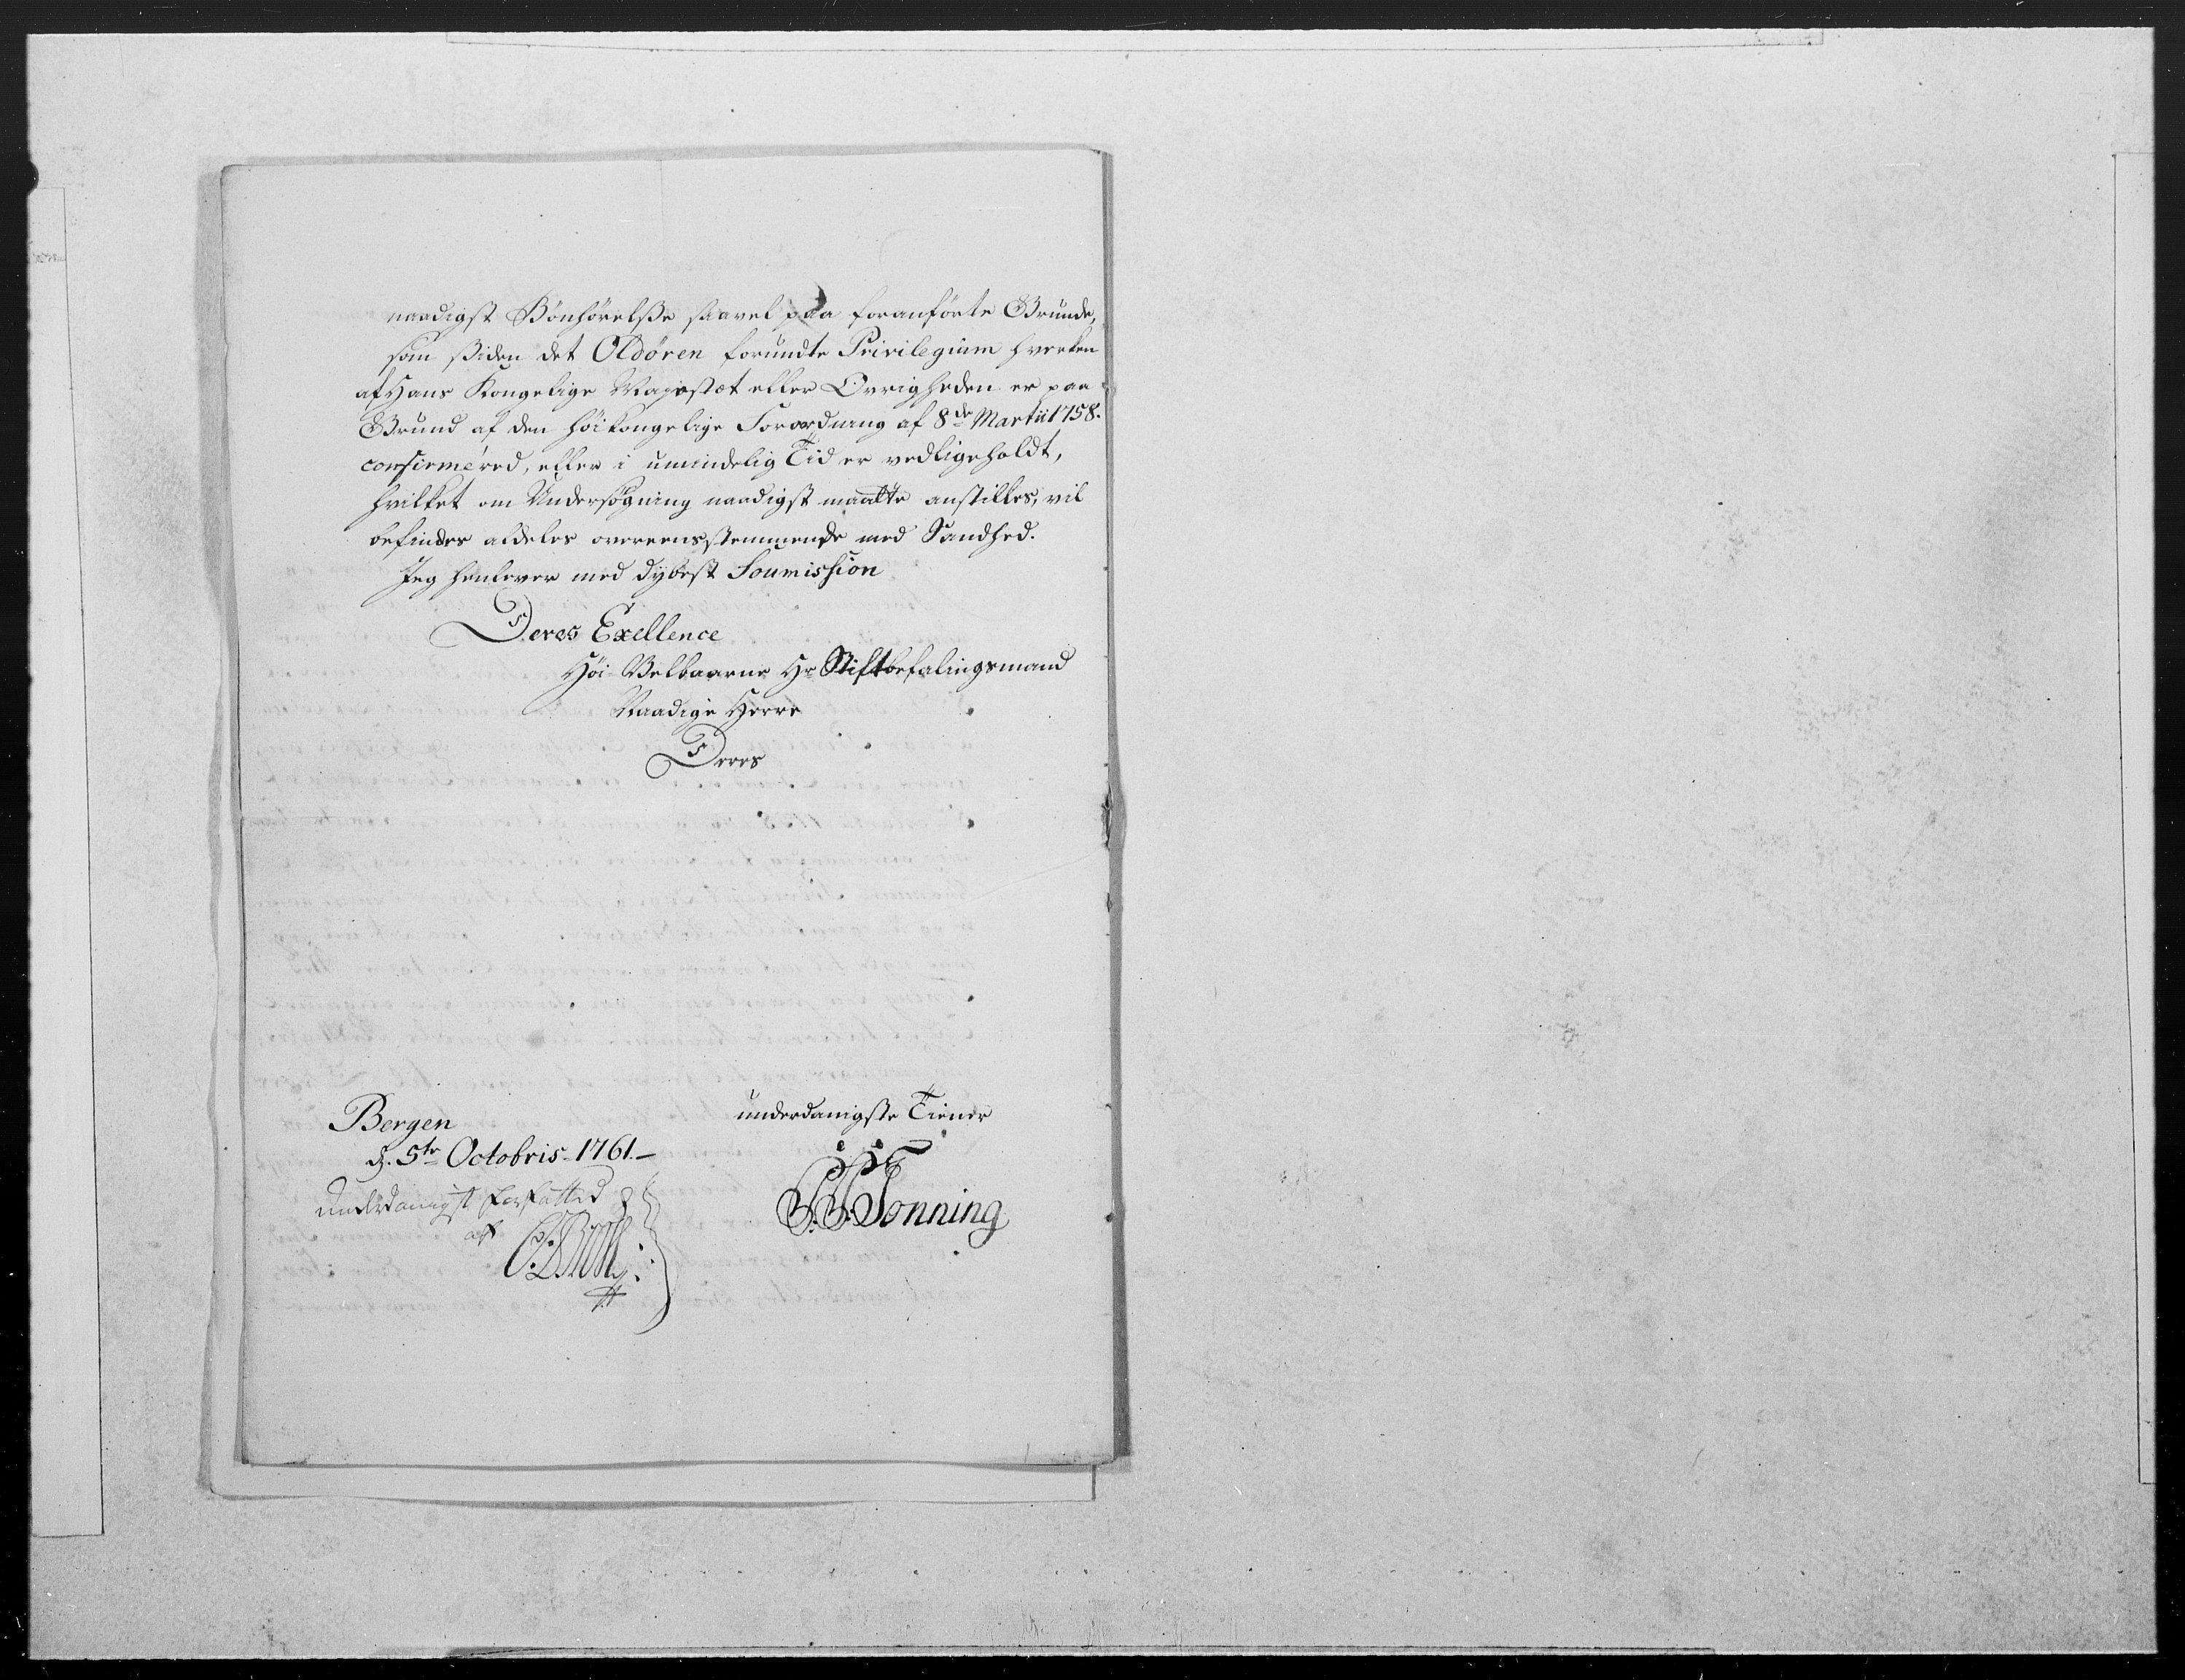 naadigst Bönhörelße saavel paa foranförte Grunde,
som ßiden det Oldøren forundte Privilegium hverken
af Hans Kongelige Mayestæt eller Øvrigheden er paa
Grund af den höikongelige Forordning af 8de Martii 1758.
confirméred, eller i umindelig Tid er vedligeholdt,
hvilket om Undersögning naadigst maatte anstilles, vil
befindes aldeles overeensstemmende med Sandhed.
Jeg henlever med dybest Soumission
Deres Exellence
Höi-Velbaarne Hr Stiftbefalingsmand
Naadige Herre
Deres
underdanigste Tiener
Bergen
d. 5te Octobris 1761.
Tonning
underdanigst forfatted
af